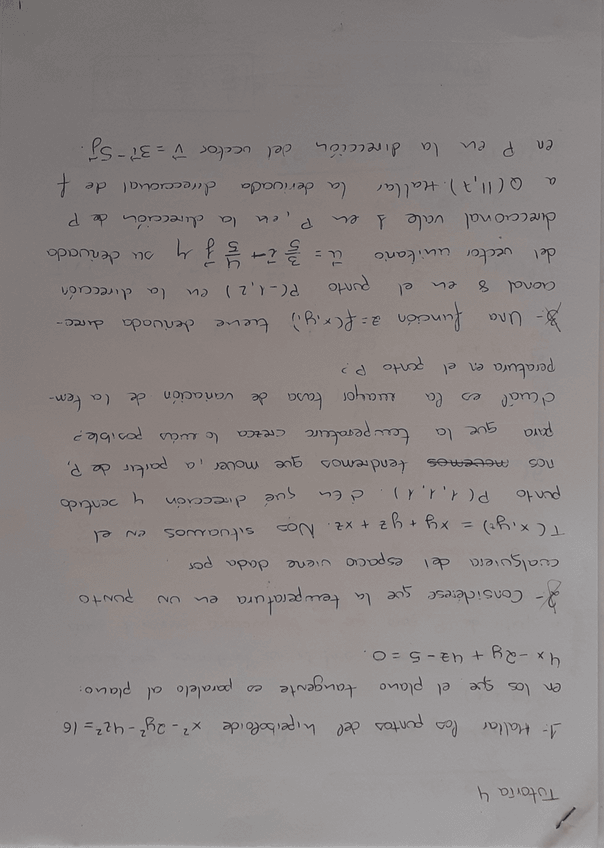 Tutoría 4
1- Hallar los puntos del hiperboloide x² - 2y² - 4z² = 16
en los que el plano tangente es paralelo al plano:
4x - 2y + 4z - 5 = 0.
2- Considérese que la temperatura en un punto
cualquiera del espacio viene dada por
T(x,y,z) = xy + yz + xz. Nos situamos en el
punto P(1,1,1). ¿En qué dirección y sentido
nos movemos tendremos que mover, a partir de P,
para que la temperatura crezca lo más posible?
¿Cuál es la mayor tasa de variación de la tem-
peratura en el punto P?
3- Una función z = f(x,y) tiene derivada direc-
cional 8 en el punto P(-1,2) en la dirección
del vector unitario u⃗ = 3/5 i⃗ + 4/5 j⃗ y su derivada
direccional vale 1 en P, en la dirección de P
a Q(11,7). Hallar la derivada direccional de f
en P en la dirección del vector v⃗ = 3i⃗ - 5j⃗.